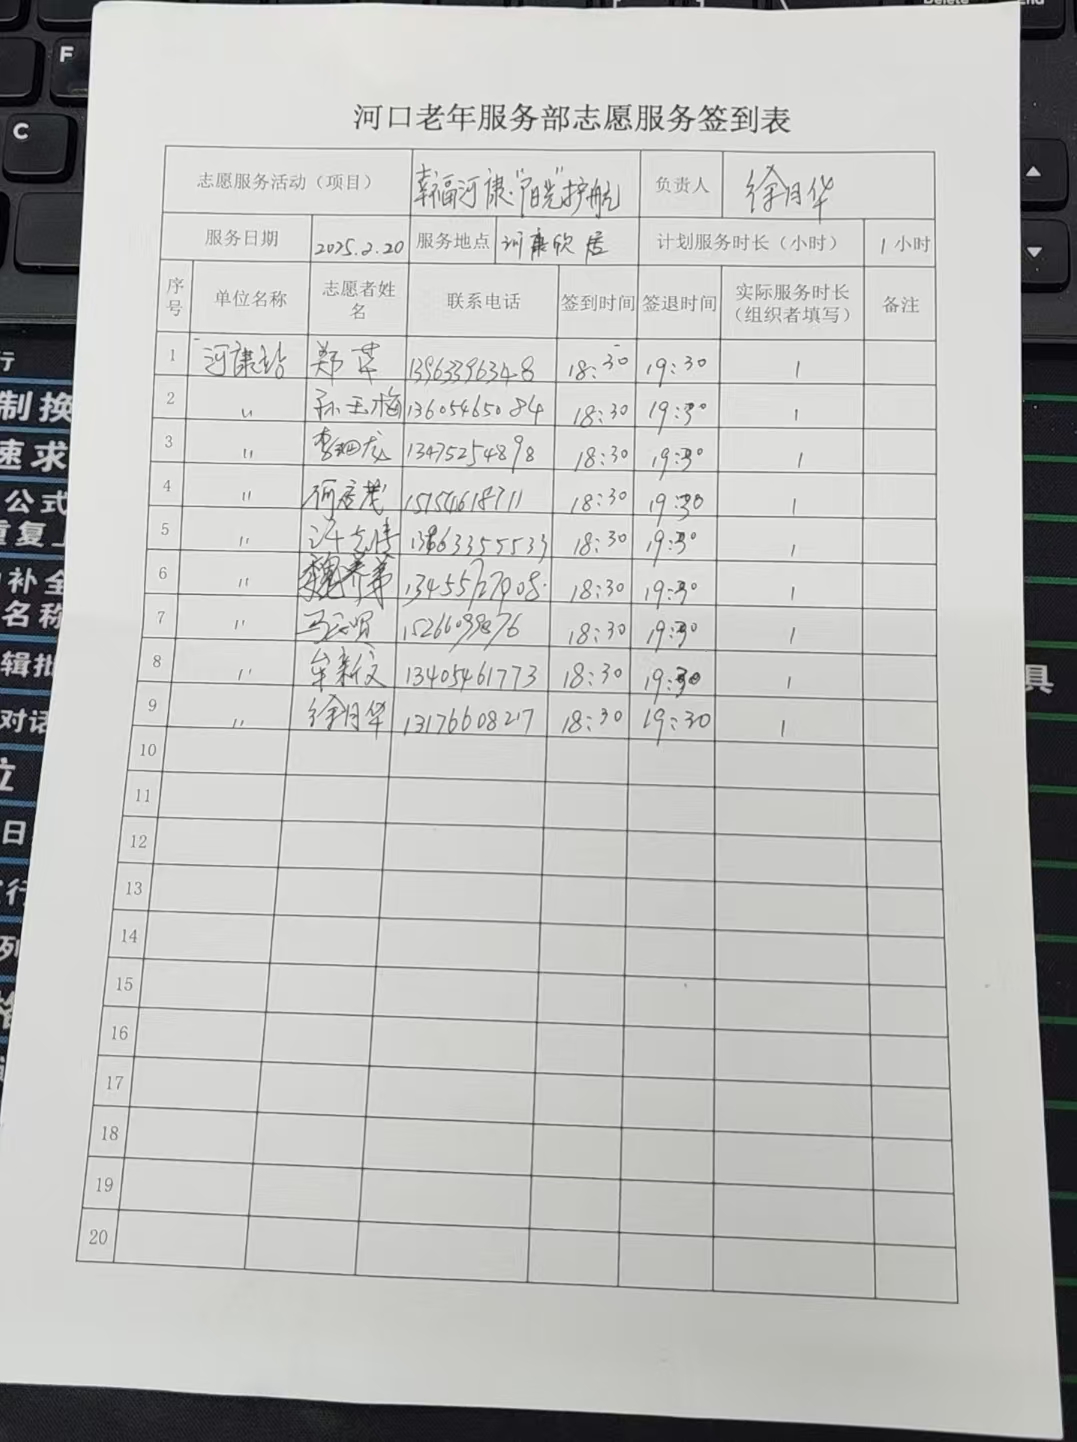 F
C
Delete
End
河口老年服务部志愿服务签到表
志愿服务活动（项目） 幸福河康·"阳光"护航 负责人 徐月华
服务日期 2025.2.20 服务地点 河康欣居 计划服务时长（小时） 1小时
序号 单位名称 志愿者姓名 联系电话 签到时间 签退时间 实际服务时长（组织者填写） 备注
1 河康站 郑苹 13963396348 18:30 19:30 1
2 〃 孙玉梅 13605465084 18:30 19:30 1
3 〃 李 龙 13475254898 18:30 19:30 1
4 〃 15154618711 18:30 19:30 1
5 〃 18:30 19:30 1
6 〃 18:30 19:30 1
7 〃 18:30 19:30 1
8 〃 牟新文 13405461773 18:30 19:30 1
9 〃 徐月华 13176608217 18:30 19:30 1
10
11
12
13
14
15
16
17
18
19
20
行
制换
速求
公式
重复上
补全
名称
辑批
对话
位
日
行
列
具